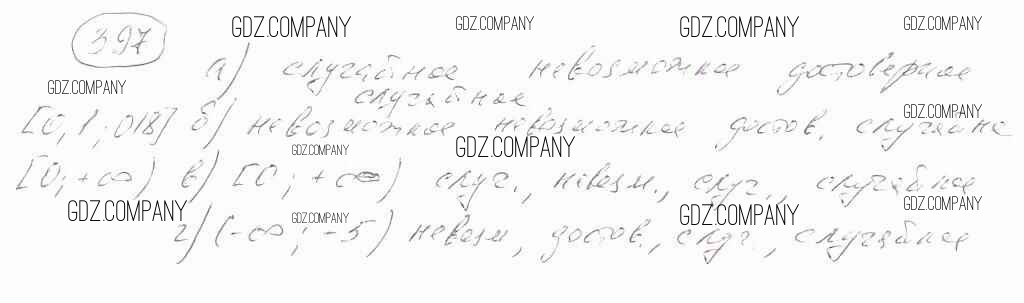 397
а) случайное невозможное достоверное
случайное
[0,1; 018] б) невозможное невозможное достов. случайно
[0; +∞) в) [0; +∞) случ., невозм., случ., случайное
г) (-∞; -5) невозм, достов., случ., случайное
GDZ.COMPANY GDZ.COMPANY GDZ.COMPANY GDZ.COMPANY
GDZ.COMPANY GDZ.COMPANY
GDZ.COMPANY GDZ.COMPANY
GDZ.COMPANY GDZ.COMPANY GDZ.COMPANY GDZ.COMPANY